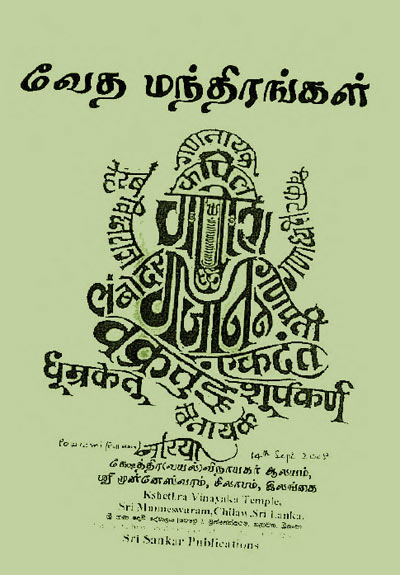 வேத மந்திரங்கள்
गणनायक
कपिल
गणेश
गजानन
लंबोदर
गणपती
वक्रतुंड
एकदंत
धूम्रकेतु
शूर्पकर्ण
विनायक
14th Sept. 2008
க்ஷேத்திர(வயல்)விநாயகர் ஆலயம்,
ஸ்ரீ முன்னேஸ்வரம், சிலாபம், இலங்கை
Kshetra Vinayaka Temple,
Sri Munneswaram, Chilaw, Sri Lanka.
Sri Sankar Publications